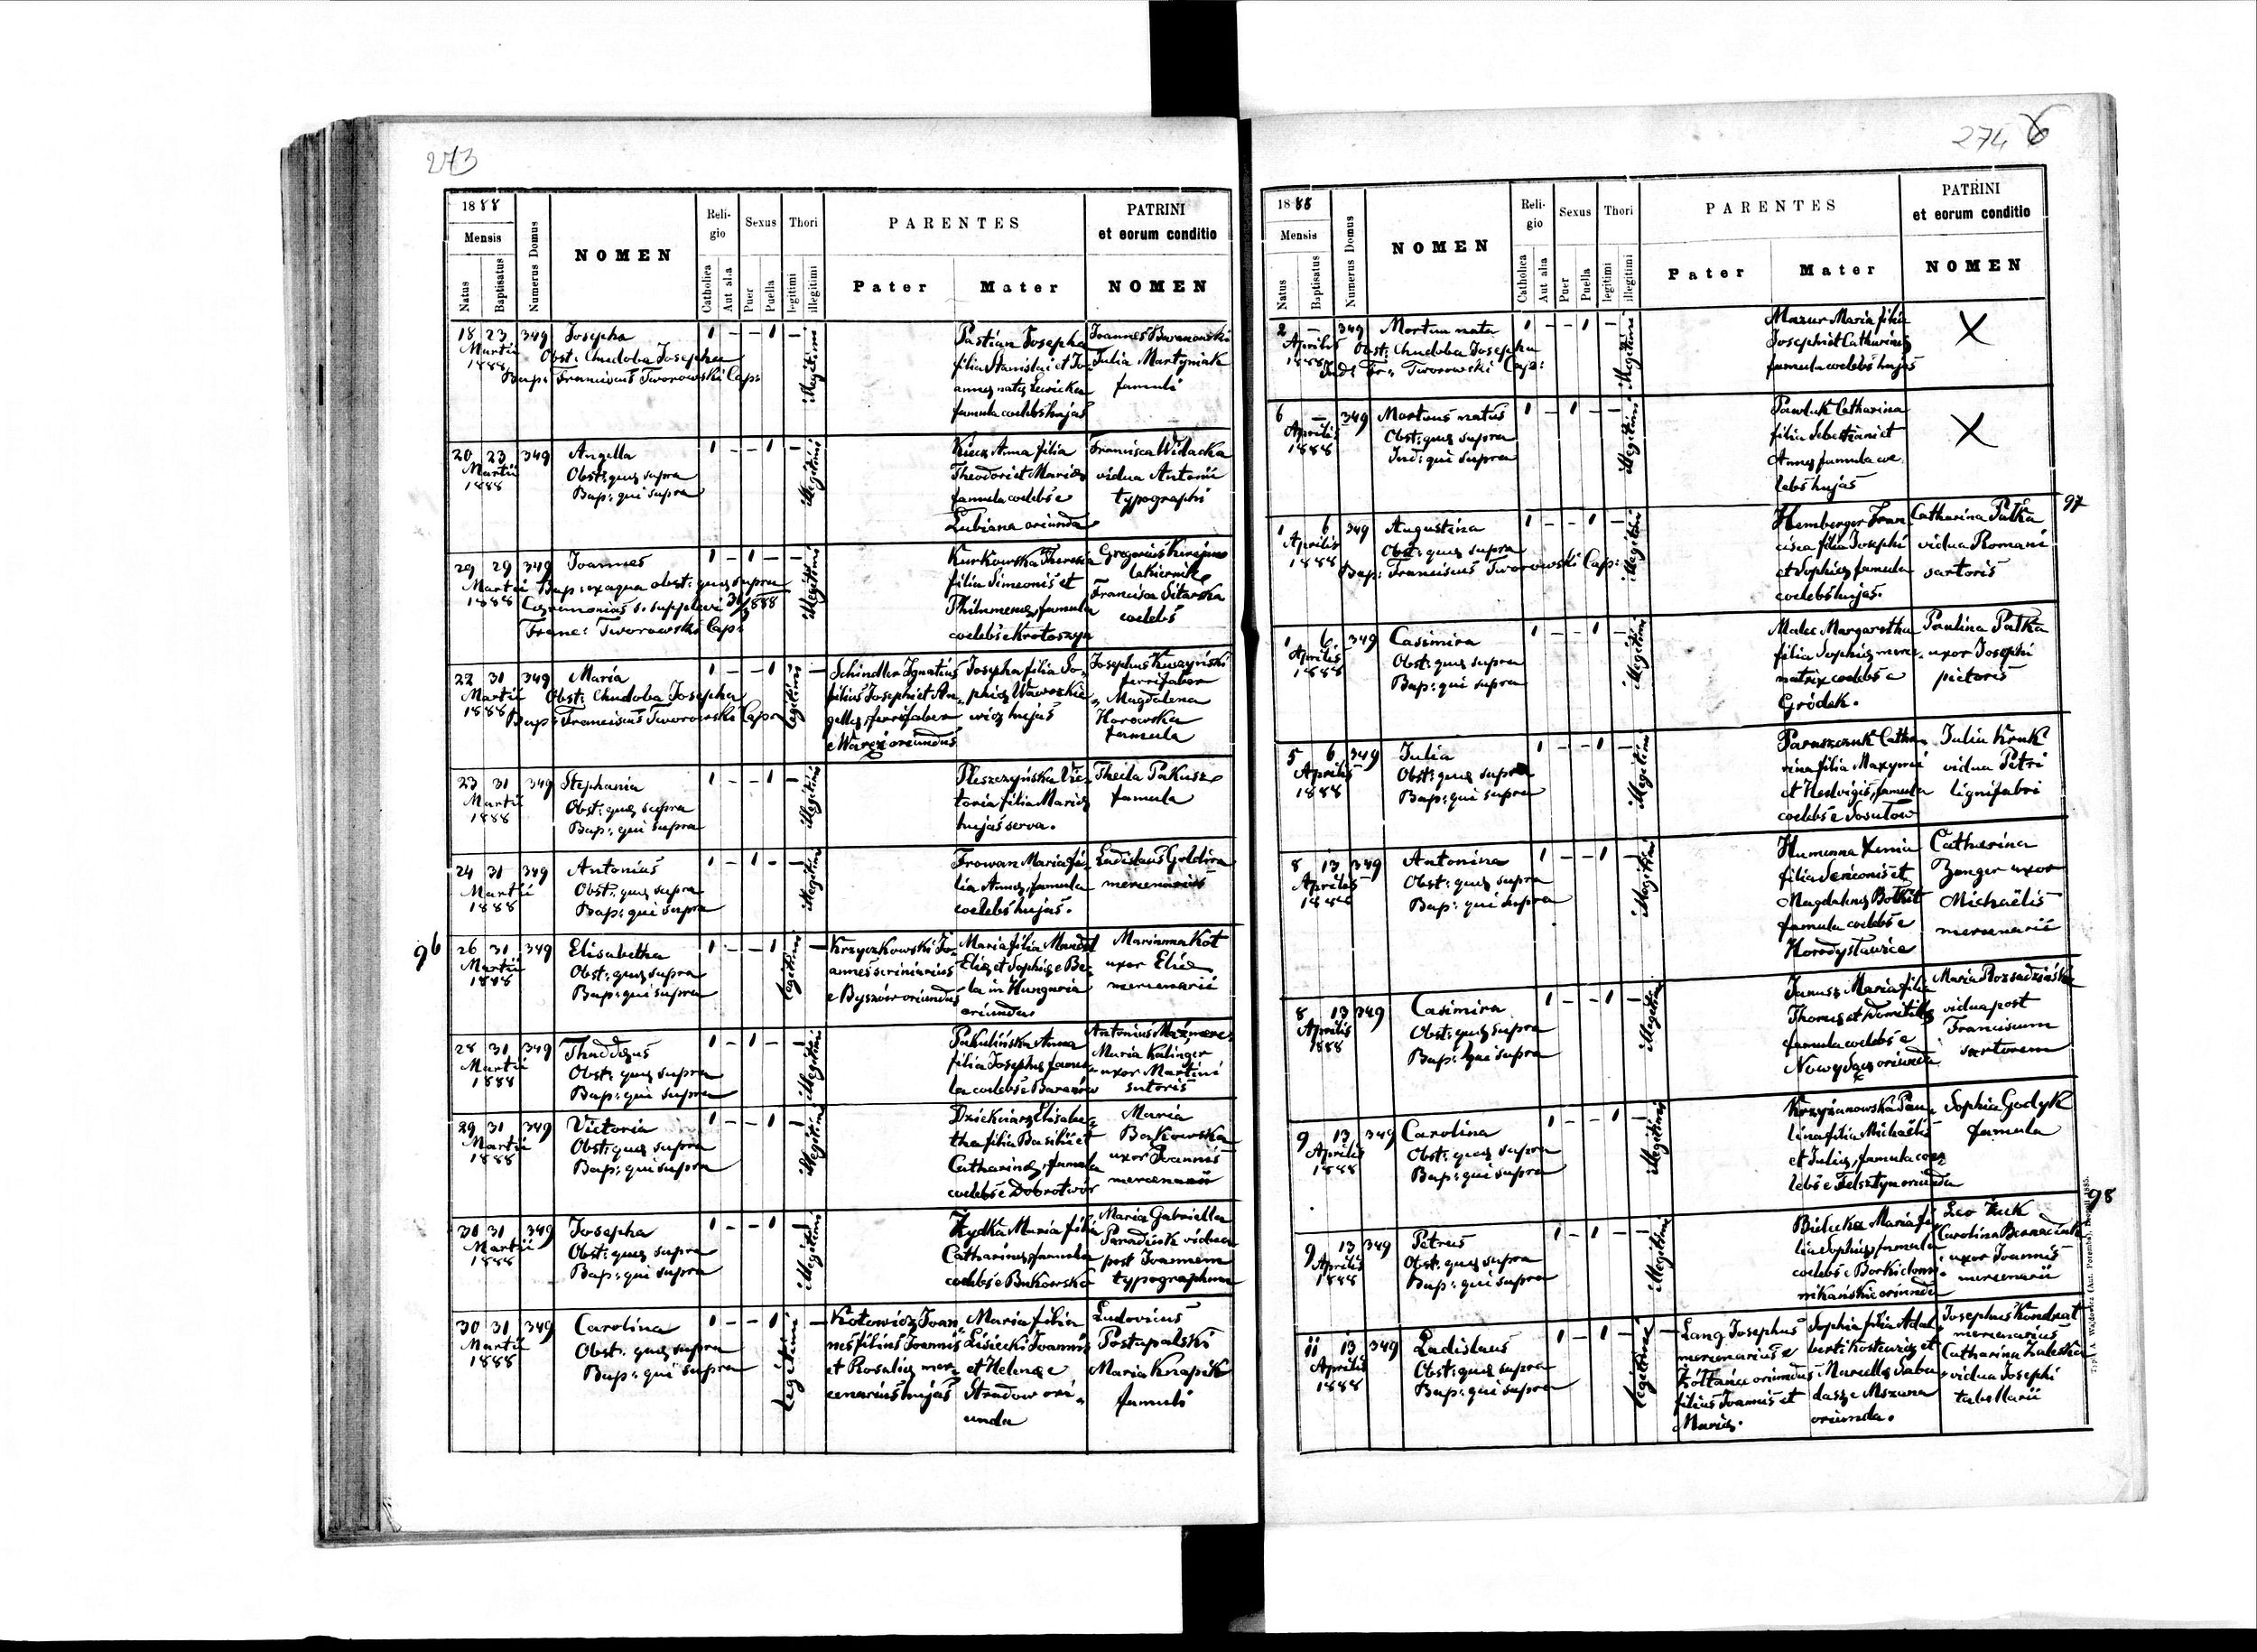 273
1888
Mensis
Natus
Baptisatus
Numerus Domus
NOMEN
Religio
Catholica
Aut alia
Sexus
Puer
Puella
Thori
legitimi
illegitimi
PARENTES
Pater
Mater
PATRINI
et eorum conditio
NOMEN
18 23 349 Josepha 1 – – 1 – illegitimi
Martii
1888
Obst: Chudoba Josepha
Bap: Franciscus Tworowski Cap:
Pastian Josepha
filia Stanislai et Jo-
annes natæ Lewicka
famula coelebs hujas
Joannes Baranowski
Julia Martyniak
famuli
20 23 349 Angella 1 – – 1 – illegitimi
Martii
1888
Obst: quæ supra
Bap: qui supra
Kiecz Anna filia
Theodori et Mariæ
famula coelebs e
Lubiana oriunda
Francisca Widacka
vidua Antonii
typographi
29 29 349 Joannes 1 – 1 – – illegitimi
Martii
1888
Bap: ex aqua obst: quæ supra
Cæremonias s. supplevi 31/3 888
Franc: Tworowski Cap:
Kurkowska Theresia
filia Simeonis et
Philumenæ, famula
coelebs e Krotoszyn
Gregorius
lakiernik
Francisca Sitarska
coelebs
22 31 349 Maria 1 – – 1 legitimi –
Martii
1888
Obst: Chudoba Josepha
Bap: Franciscus Tworowski Cap:
Schindler Ignatius
filius Josephi et An-
gellæ, ferrifaber
e Waręż oriundus
Josepha filia So-
phiæ Waworkie-
wicz hujas
Josephus Kuszyński
ferrifaber
Magdalena
Harowska
famula
23 31 349 Stephania 1 – – 1 – illegitimi
Martii
1888
Obst: quæ supra
Bap: qui supra
Pleszczyńska Vic-
toria filia Mariæ
hujas serva.
Thecla Pakusz
famula
24 31 349 Antonius 1 – 1 – – illegitimi
Martii
1888
Obst: quæ supra
Bap: qui supra
Trowan Maria fi-
lia Annæ, famula
coelebs hujas.
Ladislaus
mercenarius
96
26 31 349 Elisabetha 1 – – 1 legitimi –
Martii
1888
Obst: quæ supra
Bap: qui supra
Krzyczkowski Jo-
annes scriniarius
e Byszów oriundus
Maria filia Mandel
Eliæ et Sophiæ e Be-
la in Hungaria
oriundus
Marianna Kot
uxor Eliæ
mercenarii
28 31 349 Thaddæus 1 – 1 – – illegitimi
Martii
1888
Obst: quæ supra
Bap: qui supra
Pakulińska Anna
filia Josephæ, famu-
la coelebs e Baranów
Antonius Maź, merc.
Maria Kalinger
uxor Martini
sutoris
29 31 349 Victoria 1 – – 1 – illegitimi
Martii
1888
Obst: quæ supra
Bap: qui supra
Dziekciarz Elisabe-
tha filia Basilii et
Catharinæ, famula
coelebs e Dobrotwór
Maria
Borkowska
uxor Joannis
mercenarii
30 31 349 Josepha 1 – – 1 – illegitimi
Martii
1888
Obst: quæ supra
Bap: qui supra
Zydka Maria filia
Catharinæ, famula
coelebs e Bukowsko
Maria Gabriella
vidua
post Joannem
typographum
30 31 349 Carolina 1 – – 1 legitimi –
Martii
1888
Obst: quæ supra
Bap: qui supra
Kotowicz Joan-
nes filius Joannis
et Rosaliæ mer-
cenarius hujas
Maria filia
Lisiecki Joannis
et Helenæ e
Stradow ori-
unda
Ludovicus
Postupalski
Maria Knapik
famuli
274 6
1888
Mensis
Natus
Baptisatus
Numerus Domus
NOMEN
Religio
Catholica
Aut alia
Sexus
Puer
Puella
Thori
legitimi
illegitimi
PARENTES
Pater
Mater
PATRINI
et eorum conditio
NOMEN
2 – 349 Mortua nata 1 – – 1 – illegitimi
Aprilis
1888
Obst: Chudoba Josepha
Ind: Fr: Tworowski Cap:
Mazur Maria filia
Josephi et Catharinæ
famula coelebs hujas
X
6 – 349 Mortuus natus 1 – 1 – – illegitimi
Aprilis
1888
Obst: quæ supra
Ind: qui supra
Pawluk Catharina
filia Sebastiani et
Annæ famula coe-
lebs hujas
X
97
1 6 349 Augustina 1 – – 1 – illegitimi
Aprilis
1888
Obst: quæ supra
Bap: Franciscus Tworowski Cap:
Hemberger Fran-
cisca filia Josephi
et Sophiæ, famula
coelebs hujas.
Catharina Pałka
vidua Romani
sartoris
1 6 349 Casimira 1 – – 1 – illegitimi
Aprilis
1888
Obst: quæ supra
Bap: qui supra
Malec Margaretha
filia Sophiæ merce-
natrix coelebs e
Gródek.
Paulina Pałka
uxor Josephi
pictoris
5 6 349 Julia 1 – – 1 – illegitimi
Aprilis
1888
Obst: quæ supra
Bap: qui supra
Paraszczuk Catha-
rina filia Maxymi
et Hedvigis, famula
coelebs e
Julia Kruk
vidua Petri
lignifabri
8 13 349 Antonina 1 – – 1 – illegitimi
Aprilis
1888
Obst: quæ supra
Bap: qui supra
Humenna Xenia
filia Semionis et
Magdalenæ
famula coelebs e
Horodysławice
Catharina
Zenger uxor
Michaëlis
mercenarii
8 13 349 Casimira 1 – – 1 – illegitimi
Aprilis
1888
Obst: quæ supra
Bap: qui supra
Janusz Maria filia
Thomæ et Domitillæ
famula coelebs e
Nowy Sącz oriunda
Maria Rozsadzińska
vidua post
Franciscum
sartorem
9 13 349 Carolina 1 – – 1 – illegitimi
Aprilis
1888
Obst: quæ supra
Bap: qui supra
Krzyżanowska Pau-
lina filia Michaëlis
et Juliæ, famula coe-
lebs e Felsztyn oriunda
Sophia Gadyk
famula
98
9 13 349 Petrus 1 – 1 – – illegitimi
Aprilis
1888
Obst: quæ supra
Bap: qui supra
Bielucka Maria fi-
lia Sophiæ, famula
coelebs e Borki domi-
nikańskie oriunda
Leo Żuk
Carolina
uxor Joannis
mercenarii
11 13 349 Ladislaus 1 – 1 – legitimi –
Aprilis
1888
Obst: quæ supra
Bap: qui supra
Lang Josephus
mercenarius e
Żółtańce oriundus
filius Joannis et
Mariæ.
Sophia filia Adal-
berti Kostewicz et
Marcellæ
e Mszana
oriunda.
Josephus Kondrat
mercenarius
Catharina Zaleska
vidua Josephi
tabellarii